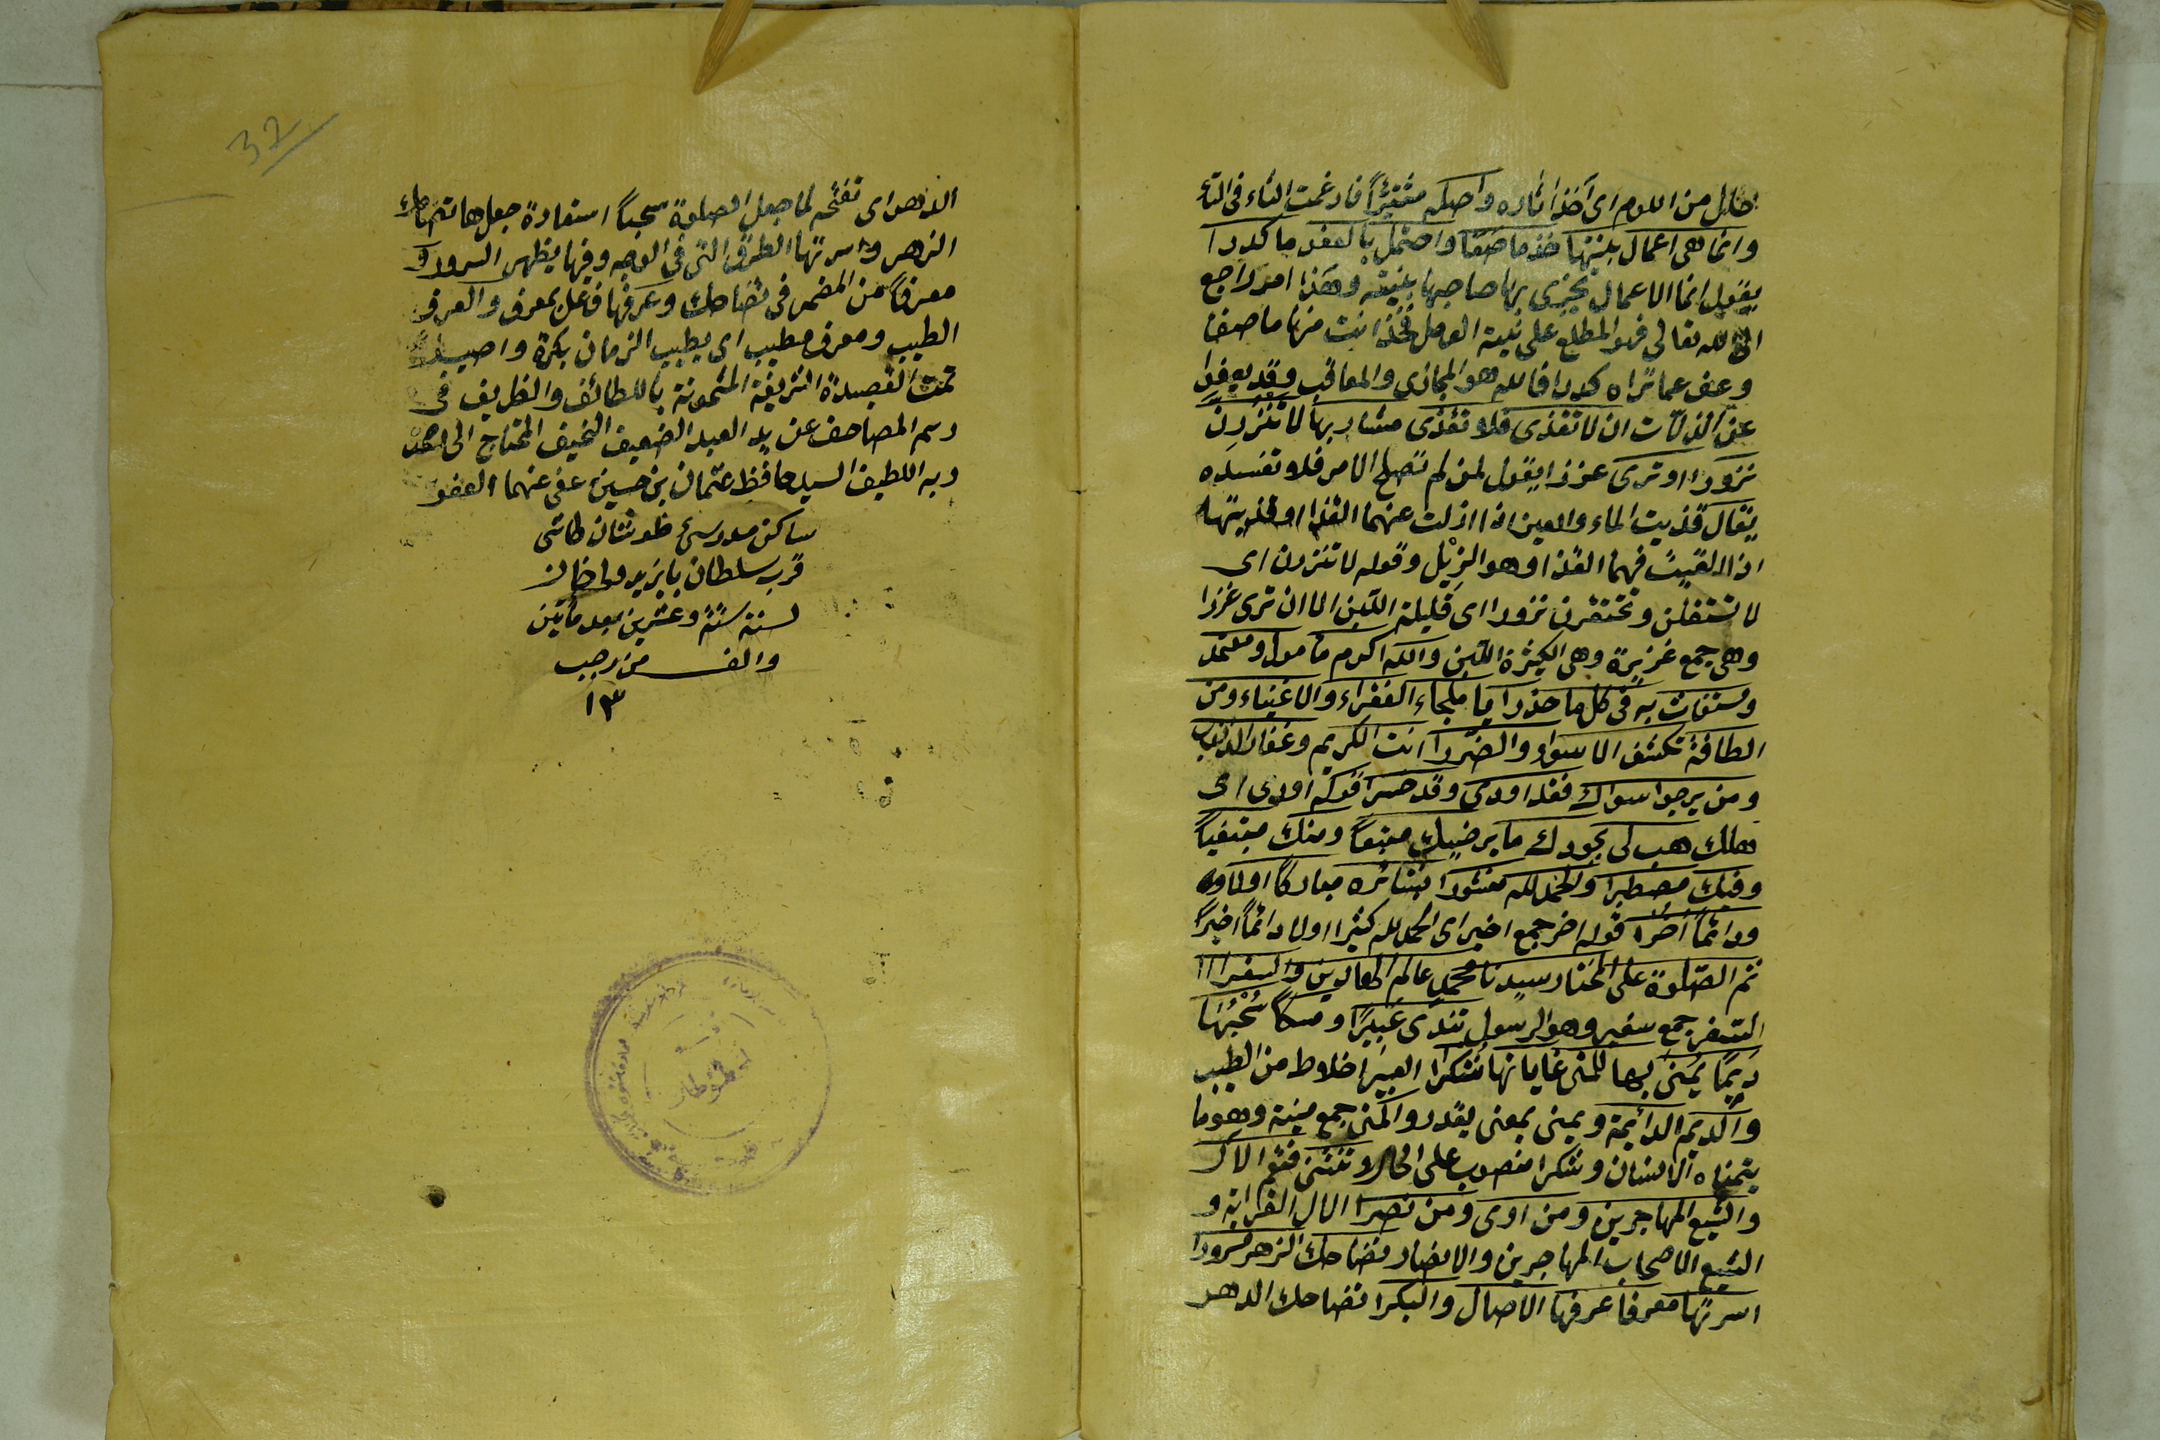 خال من اللوم اى آخذا ثاره واصله مثتئرًا فادغمت الثاء فى التاء
وانما هى اعمال بنيتها خذ ما صفا واحتمل بالعفو ما كدرا
يقول انما الاعمال يجزى بها صاحبها بنيته وهذا امر راجع
الى الله تعالى فهو المطلع على نية العامل فخذ انت منها ما صفا
وعف عما تراه كدرا فالله هو المجازى والمعاقب وقد يعفو
عن الزلات ان لا تقذى فلا تقذى مشاربها لا تنزرن
نزورا او ترى غزرا يقول لمن لم تصلح الامر فلا تفسده
يقال قذيت الماء والعين اذا ازلت عنهما القذا وقذيتها
اذا القيت فيهما القذا وهو الزبل وقوله لا تنزرن اى
لا تستقلن وتحتقرن نزورا اى قليلة اللبن الا ان ترى غزرا
وهى جمع غزيرة وهى الكثيرة اللبن والله اكرم مأمول ومعتمد
ومستغاث به فى كل ما حذرا يا ملجاء الفقراء والاغنياء ومن
الطافه تكشف الاسواء والضررا انت الكريم وغفار الذنوب
ومن يرجو سواك فقد اودى وقد خسرا قوله اودى اى
هلك هب لى بجودك ما يرضيك متبعاً ومنك مبتغياً
وفيك مصطبرا والحمد لله منشورا بشائره مباركا اولا
ودائماً اخرا قوله اخر جمع اخير اى الحمد لله كثيرا اولا دائماً اخيراً
ثم الصلوة على المختار سيدنا محمد عالم الهادين والسفرا
السفر جمع سفير وهو الرسول تندى عبيرًا ومسكاً سُحْبُهَا
دِيَمًا يمنى بها للمنى غاياتها شكرا العبير اخلاط من الطيب
والديم الدائمة ويمنى بمعنى يقدر والمنى جمع منية وهو ما
يتمناه الانسان وشكرا منصوب على الحال وتنثنى فتعم الآل
والشيع المهاجرين ومن اوى ومن نصرا الآل القرابة و
الشيع الاصحاب المهاجرين والانصار تضاحك الزهر مسرورا
اسرتها معرفا عرفها الآصال والبكرا تضاحك الدهر
الزهر اى تفتحه لما جعل الصلوة سحباً استعارة جعلها تضاحك
الزهر واسرتها الطرق التى فى الوجه وفيها يظهر السرور و
معرفاً من المضمر فى تضاحك وعرفها فاعل بمعرف والعرف
الطيب ومعرف مطيب اى يطيب الزمان بكرة واصيلا
تمت القصيدة الشريفة المشحونة باللطائف والظريف فى
رسم المصاحف عن يد العبد الضعيف النحيف المحتاج الى رحمة
ربه اللطيف السيد حافظ عثمان بن حسين عفى عنهما العفو
ساكن مدرسهٔ طاشى
قرب سلطان بايزيد ولى خان
لسنة ستة وعشرين بعد مأتين
والف من رجب
١٣
32